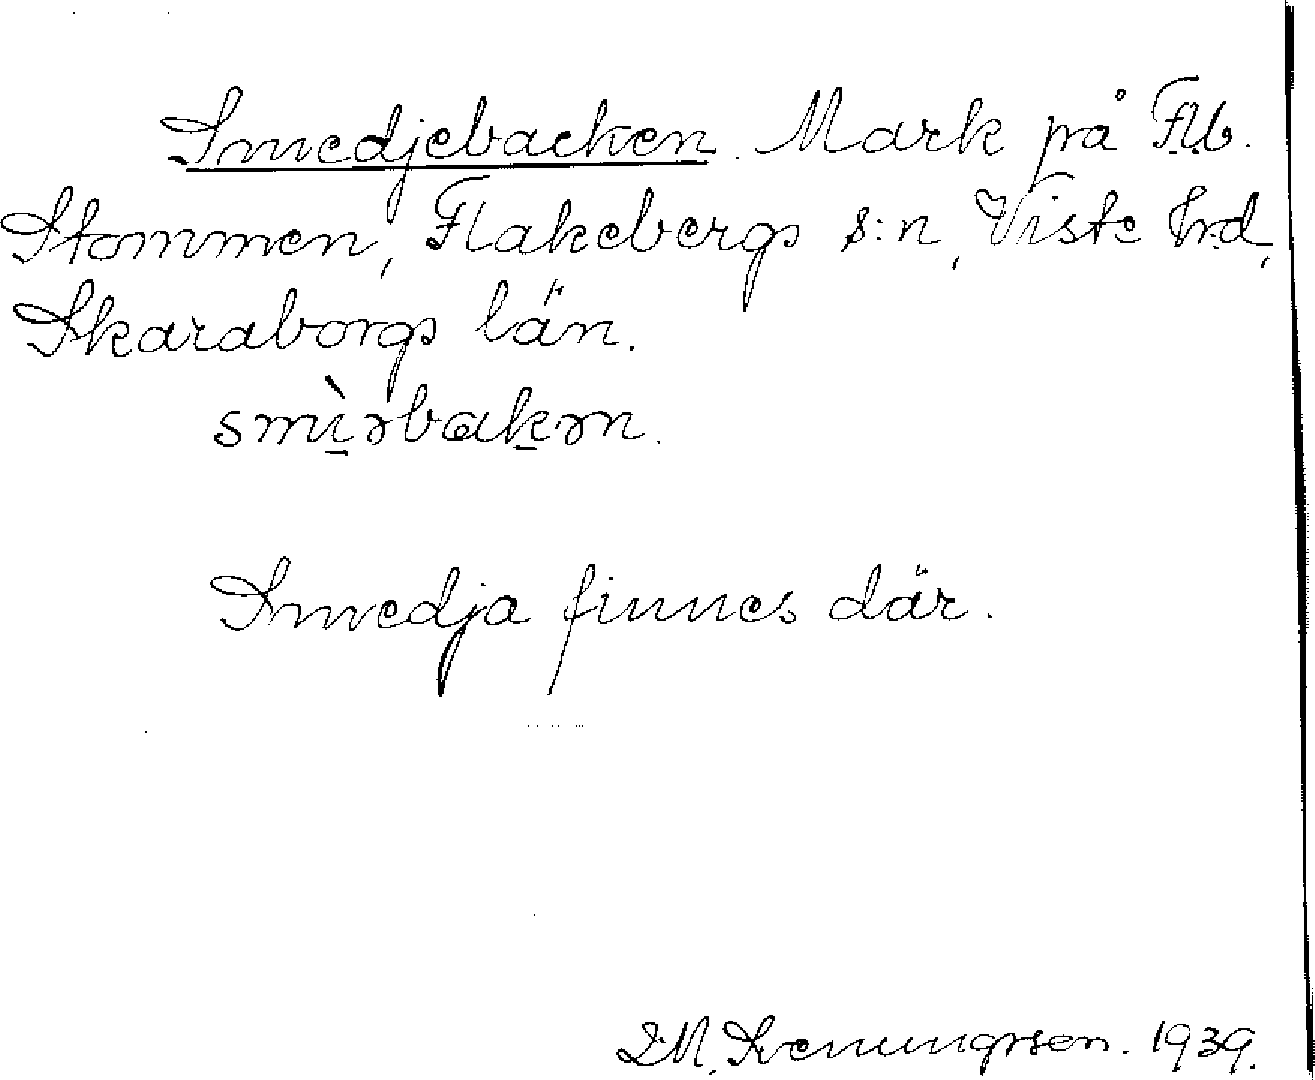 Smedjebacken. Mark på Flb.
Stommen, Flakebergs s:n, Viste hrd,
Skaraborgs län.
smìərbakən.
Smedja finnes där.
D.M. Svenungsson. 1939.